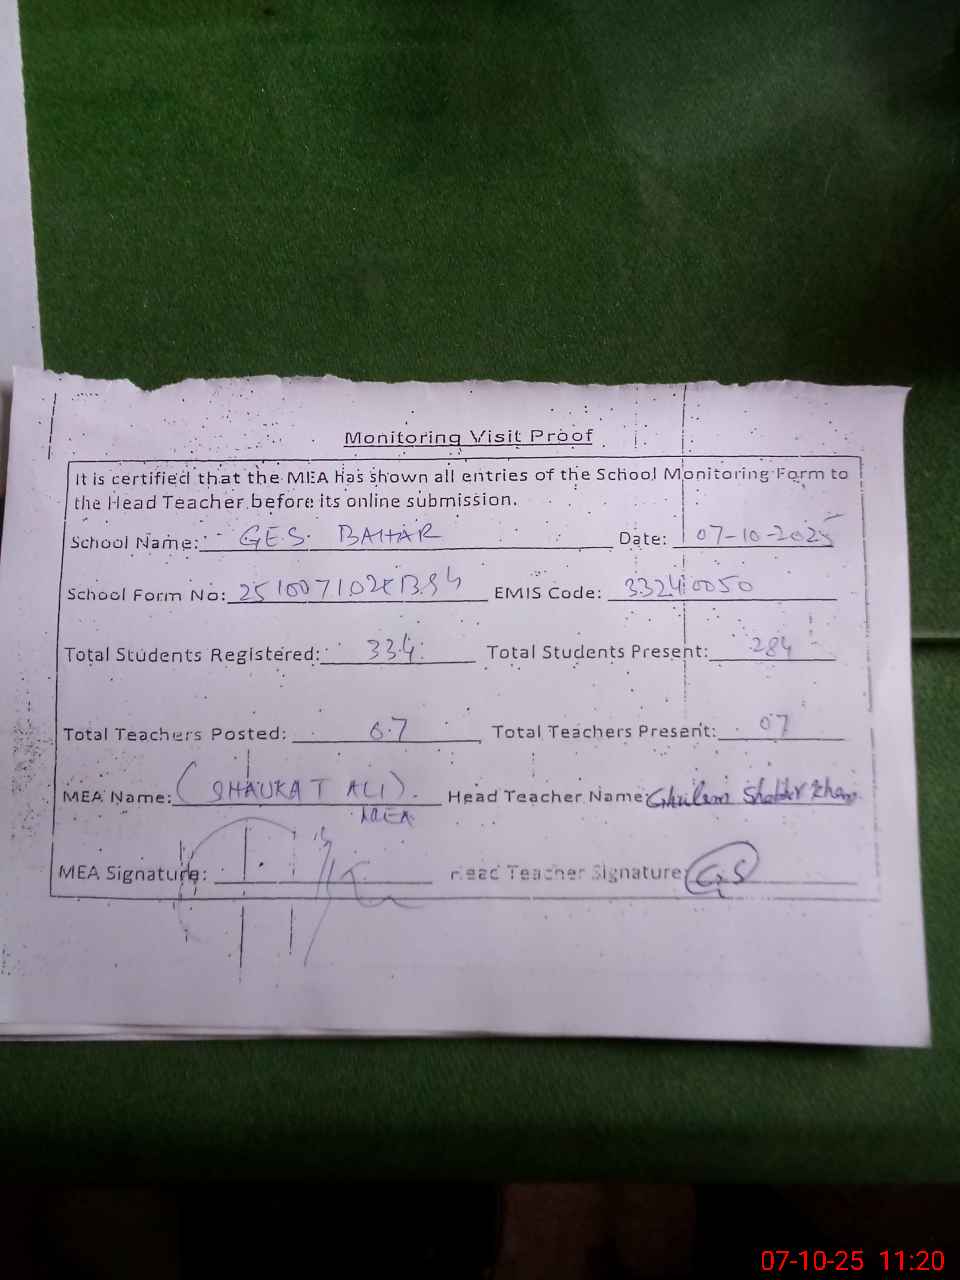 Monitoring Visit Proof
It is certified that the MEA has shown all entries of the School Monitoring Form to
the Head Teacher before its online submission.
School Name: G.E.S. BAHAR Date: 07-10-2025
School Form No: EMIS Code: 33240050
Total Students Registered: 334 Total Students Present: 284
Total Teachers Posted: 07 Total Teachers Present: 07
MEA Name: (SHAUKAT ALI). Head Teacher Name: Khan
MEA
MEA Signature: Head Teacher Signature: GS
07-10-25 11:20